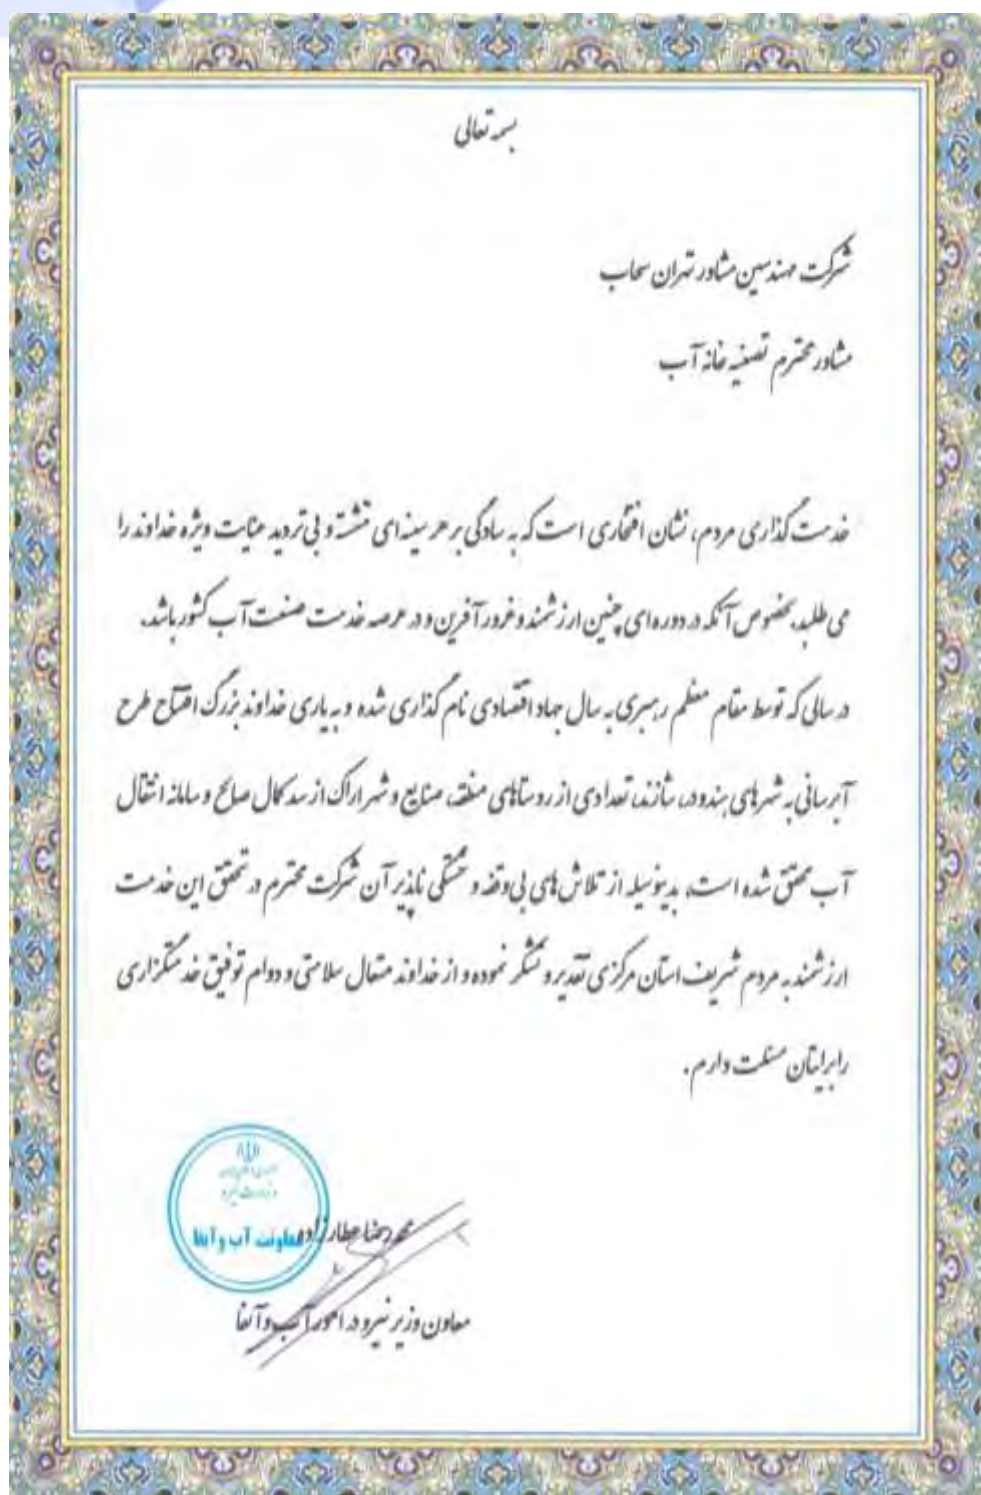 بسمه تعالی
شرکت مهندسین مشاور تهران سحاب
مشاور محترم تصفیه خانه آب
خدمت گذاری مردم، نشان افتخاری است که به سادگی بر هر سینه ای ننشسته و بی تردید عنایت ویژه خداوند را
می طلبد، بخصوص آنکه در دوره ای چنین ارزشمند و غرور آفرین و در عرصه خدمت صنعت آب کشور باشد.
در سالی که توسط مقام معظم رهبری به سال جهاد اقتصادی نام گذاری شده و به یاری خداوند بزرگ افتتاح طرح
آبرسانی به شهرهای هندودر، شازند، تعدادی از روستاهای منطقه، صنایع و شهر اراک از سد کمال صالح و سامانه انتقال
آب محقق شده است، بدینوسیله از تلاش های بی وقفه و خستگی ناپذیر آن شرکت محترم در تحقق این خدمت
ارزشمند به مردم شریف استان مرکزی تقدیر و تشکر نموده و از خداوند متعال سلامتی و دوام توفیق خدمتگزاری
را برایتان مسئلت دارم.
وزارت نیرو
معاونت آب و آبفا
محمدرضا عطارزاده
معاون وزیر نیرو در امور آب و آبفا